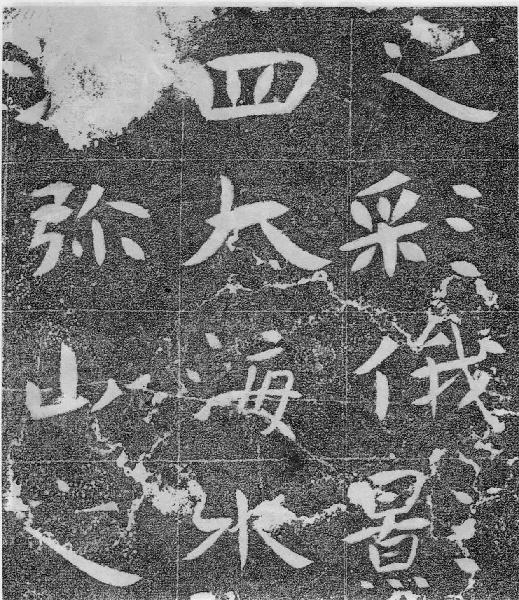 之彩俄影
四大海水
弥山之